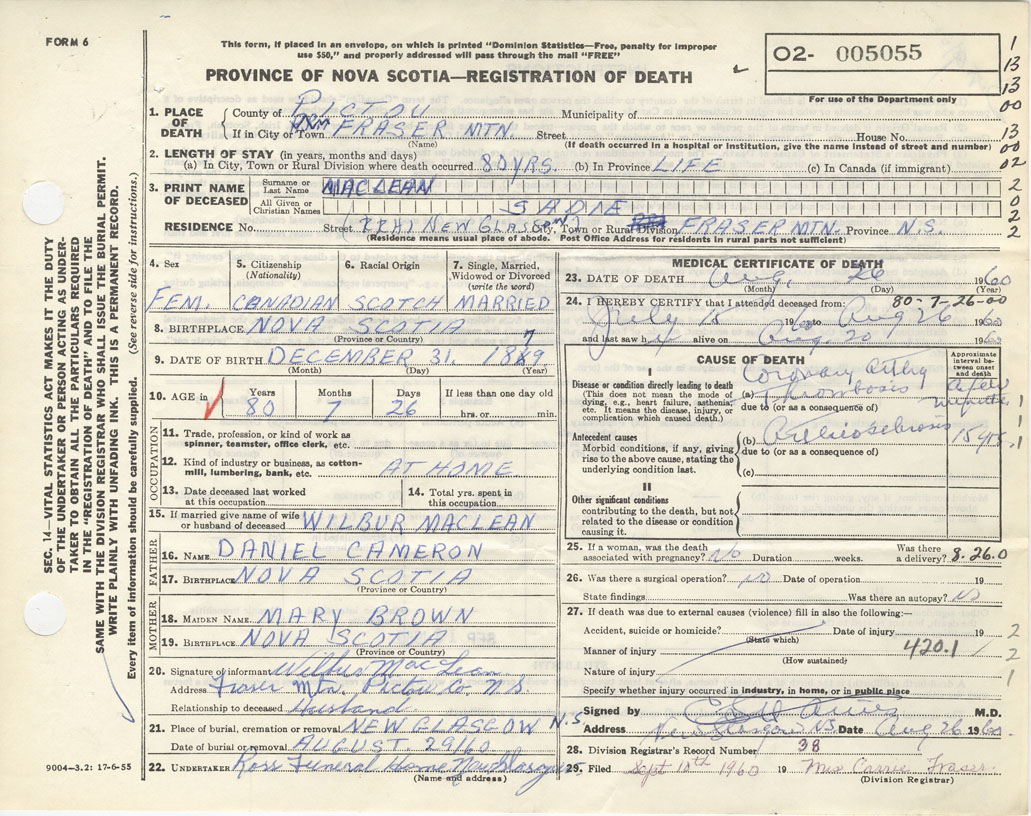 FORM 6
This form, if placed in an envelope, on which is printed "Dominion Statistics—Free, penalty for improper
use $50," and properly addressed will pass through the mail "FREE"
PROVINCE OF NOVA SCOTIA—REGISTRATION OF DEATH
02- 005055
For use of the Department only
1
13
13
00
13
00
02
2
0
2
2
1. PLACE OF DEATH County of PICTOU Municipality of
If in City or Town FRASER MTN. Street House No.
(Name) (If death occurred in a hospital or institution, give the name instead of street and number)
2. LENGTH OF STAY (in years, months and days)
(a) In City, Town or Rural Division where death occurred 80 YRS. (b) In Province LIFE (c) In Canada (if immigrant)
3. PRINT NAME OF DECEASED
Surname or Last Name MACLEAN
All Given or Christian Names SADIE
RESIDENCE No. Street (RR#1 NEW GLASGOW) City, Town or Rural Division FRASER MTN. Province N.S.
(Residence means usual place of abode. Post Office Address for residents in rural parts not sufficient)
4. Sex FEM.
5. Citizenship (Nationality) CANADIAN
6. Racial Origin SCOTCH
7. Single, Married, Widowed or Divorced (write the word) MARRIED
8. BIRTHPLACE NOVA SCOTIA
(Province or Country)
9. DATE OF BIRTH DECEMBER 31. 1879
(Month) (Day) (Year)
10. AGE in Years 80 Months 7 Days 26 If less than one day old hrs. or min.
OCCUPATION
11. Trade, profession, or kind of work as spinner, teamster, office clerk, etc.
12. Kind of industry or business, as cotton-mill, lumbering, bank, etc. AT HOME
13. Date deceased last worked at this occupation
14. Total yrs. spent in this occupation
15. If married give name of wife or husband of deceased WILBUR MACLEAN
FATHER
16. NAME DANIEL CAMERON
17. BIRTHPLACE NOVA SCOTIA
(Province or Country)
MOTHER
18. MAIDEN NAME MARY BROWN
19. BIRTHPLACE NOVA SCOTIA
(Province or Country)
20. Signature of informant Wilbur MacLean
Address Fraser Mtn. Pictou Co N.S.
Relationship to deceased Husband
21. Place of burial, cremation or removal NEW GLASGOW N.S.
Date of burial or removal AUGUST. 29/60
22. UNDERTAKER Ross Funeral Home New Glasgow
(Name and address)
MEDICAL CERTIFICATE OF DEATH
23. DATE OF DEATH Aug. 26 1960
(Month) (Day) (Year)
24. I HEREBY CERTIFY that I attended deceased from: 80-7-26-00
July 15 1960 to Aug 26 1960
and last saw h alive on Aug. 20 1960
CAUSE OF DEATH
Approximate interval between onset and death
I
Disease or condition directly leading to death
(This does not mean the mode of dying, e.g., heart failure, asthenia, etc. It means the disease, injury, or complication which caused death.)
(a) Coronary Artery Thrombosis a few minutes
due to (or as a consequence of)
1
1
Antecedent causes
Morbid conditions, if any, giving rise to the above cause, stating the underlying condition last.
(b) Arteriosclerosis 15 yrs.
due to (or as a consequence of)
1
(c)
II
Other significant conditions
contributing to the death, but not related to the disease or condition causing it.
25. If a woman, was the death associated with pregnancy? NO Duration weeks. Was there a delivery? 8.26.0
26. Was there a surgical operation? NO Date of operation 19
State findings Was there an autopsy? NO
27. If death was due to external causes (violence) fill in also the following:—
Accident, suicide or homicide? Date of injury 19 2
(State which)
Manner of injury 420.1 2
(How sustained)
Nature of injury 1
Specify whether injury occurred in industry, in home, or in public place
Signed by M.D.
Address New Glasgow N.S. Date Aug 26 1960
28. Division Registrar's Record Number 38
29. Filed Sept 10th 1960 19 Miss Carrie Fraser
(Division Registrar)
SEC. 14—VITAL STATISTICS ACT MAKES IT THE DUTY
OF THE UNDERTAKER OR PERSON ACTING AS UNDER-
TAKER TO OBTAIN ALL THE PARTICULARS REQUIRED
IN THE "REGISTRATION OF DEATH" AND TO FILE THE
SAME WITH THE DIVISION REGISTRAR WHO SHALL ISSUE THE BURIAL PERMIT.
WRITE PLAINLY WITH UNFADING INK. THIS IS A PERMANENT RECORD.
Every item of information should be carefully supplied. (See reverse side for instructions.)
9004-3.2: 17-6-55